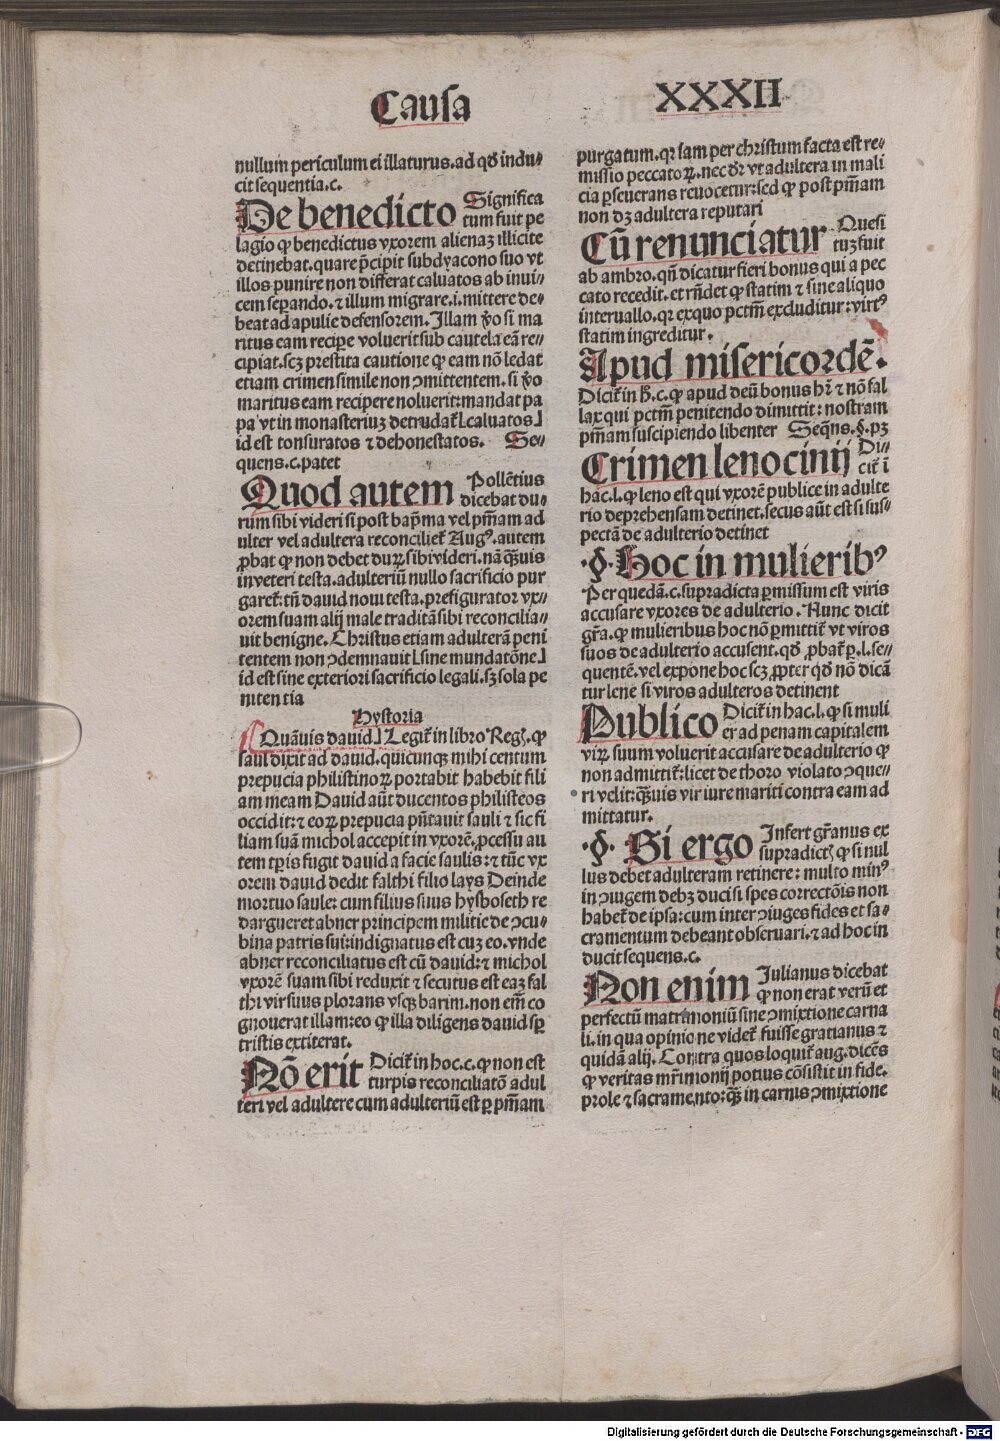 Causa
XXXII
nullum periculum ei illaturus.ad qđ indu⸗
cit sequentia.c.
De benedicto Significa
tum fuit pe
lagio ꝙ benedictus vxorem alienaꝫ illicite
detinebat.quare p̄cipit subdyacono suo vt
illos punire non differat caluatos ab inui⸗
cem sepando.⁊ illum migrare.i.mittere de⸗
beat ad apulie defensorem.Illam ꝟo si ma
ritus eam recipe voluerit sub cautela eā re⸗
cipiat.scꝫ prestita cautione ꝙ eam nō ledat
etiam crimen simile non ꝯmittentem.si ꝟo
maritus eam recipere noluerit:mandat pa
pa vt in monasteriuꝫ detrudat᷑ caluatos
id est tonsuratos ⁊ dehonestatos. Se⸗
quens.c.patet
Quod autem Pollētius
dicebat du⸗
rum sibi videri si post bap̄ma vel pn̄iam ad
ulter vel adultera reconciliet᷑ Augꝰ.autem
ꝓbat ꝙ non debet duꝝ sibi videri.nā ꝙ̄uis
in veteri testa.adulteriū nullo sacrificio pur
garet᷑:tn̄ dauid noui testa.prefigurator vx⸗
orem suam alij male traditā sibi reconcilia⸗
uit benigne.Christus etiam adulterā peni
tentem non ꝯdemnauit sine mundatōne
id est sine exteriori sacrificio legali.sꝫ sola pe
nitentia
Hystoria
Quāuis dauid Legit᷑ in libro Reg.ꝙ
saul dixit ad dauid.quicunqꝫ mihi centum
prepucia philistinoꝝ portabit habebit fili
am meam Dauid aūt ducentos philisteos
occidit:⁊ eoꝝ prepucia pn̄tauit sauli ⁊ sic fi
liam suā michol accepit in vxorē.ꝓcessu au
tem tꝑis fugit dauid a facie saulis:⁊ tūc vx
orem dauid dedit falthi filio lays Deinde
mortuo saule: cum filius suus hysboseth re
dargueret abner principem militie de ꝯcu⸗
bina patris sui:indignatus est cuꝫ eo.vnde
abner reconciliatus est cū dauid:⁊ michol
vxorē suam sibi reduxit ⁊ secutus est eaꝫ fal
thi vir suus plorans vsqꝫ barim.non em̄ co
gnouerat illam:eo ꝙ illa diligens dauid sꝑ
tristis extiterat.
Nō erit Dicit᷑ in hoc.c.ꝙ non est
turpis reconciliatō adul
teri vel adultere cum adulteriū est ꝑ pn̄iam
purgatum.qꝛ iam per christum facta est re⸗
missio peccatoꝝ.nec dr̄ vt adultera in mali
cia ꝑseuerans reuocetur:sed ꝙ post pn̄iam
non dꝫ adultera reputari
Cū renunciatur Quesi
tuꝫ fuit
ab ambro.qn̄ dicatur fieri bonus qui a pec
cato recedit.et rn̄det ꝙ statim ⁊ sine aliquo
interuallo.qꝛ ex quo pctm̄ excluditur:virtꝰ
statim ingreditur.
Apud misericordē.
Dicit᷑ in h̄.c.ꝙ apud deū bonus hr̄ ⁊ nō fal
lax qui pctm̄ penitendo dimittit: nostram
pn̄iam suscipiendo libenter Seqn̄s.§.pꝫ
Crimen lenocinij Di⸗
cit᷑ ī
hac.l.ꝙ leno est qui vxorē publice in adulte
rio deprehensam detinet.secus aūt est si sus⸗
pectā de adulterio detinet
·§·Hoc in mulieribꝰ
Per quedā.c.supradicta ꝑmissum est viris
accusare vxores de adulterio.Nunc dicit
gr̄a.ꝙ mulieribus hoc nō ꝑmittit᷑ vt viros
suos de adulterio accusent.qđ ꝓbat᷑ ꝑ.l.se⸗
quentē.vel expone hoc scꝫ ꝓpter qđ nō dicā
tur lene si viros adulteros detinent
Publico Dicit᷑ in hac.l.ꝙ si muli
er ad penam capitalem
viꝝ suum voluerit accusare de adulterio ꝙ
non admittit᷑:licet de thoro violato ꝯque⸗
ri velit:ꝙ̄uis vir iure mariti contra eam ad
mittatur.
·§· Si ergo Infert gr̄anus ex
supradict ꝙ si nul
lus debet adulteram retinere: multo minꝰ
in ꝯiugem debꝫ duci si spes correctōis non
habet᷑ de ipsa:cum inter ꝯiuges fides et sa⸗
cramentum debeant obseruari.⁊ ad hoc in
ducit sequens.c.
Non enim Julianus dicebat
ꝙ non erat verū et
perfectū matrimoniū sine ꝯmixtione carna
li.in qua opinione videt᷑ fuisse gratianus ⁊
quidā alij.Contra quos loquit᷑ aug.dicēs
ꝙ veritas mr̄imonij potius cōsistit in fide.
prole ⁊ sacramento:ꝙ̄ in carnis ꝯmixtione
Digitalisierung gefördert durch die Deutsche Forschungsgemeinschaft - DFG